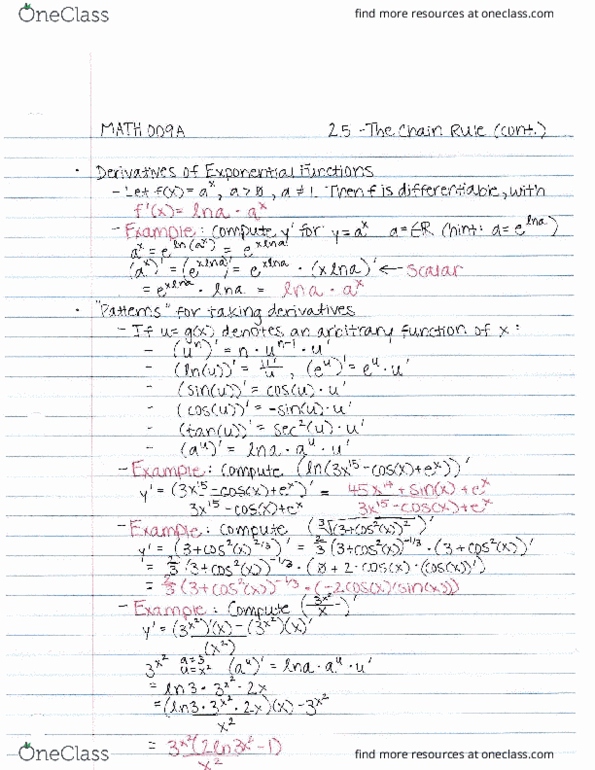 OneClass
find more resources at oneclass.com
MATH 009A 2.5 - The Chain Rule (cont.)
• Derivatives of Exponential Functions
- Let f(x) = aˣ, a > 0, a ≠ 1. Then f is differentiable, with
f'(x) = lna · aˣ
- Example: compute y' for y = aˣ a = ∈ ℝ (hint: a = e^(lna))
aˣ = e^(ln(aˣ)) = e^(xlna)
(aˣ)' = (e^(xlna))' = e^(xlna) · (xlna)' ← scalar
= e^(xlna) · lna = lna · aˣ
• "Patterns" for taking derivatives
- If u = g(x) denotes an arbitrary function of x:
- (uⁿ)' = n · uⁿ⁻¹ · u'
- (ln(u))' = u'/u, (eᵘ)' = eᵘ · u'
- (sin(u))' = cos(u) · u'
- (cos(u))' = -sin(u) · u'
- (tan(u))' = sec²(u) · u'
- (aᵘ)' = lna · aᵘ · u'
- Example: compute (ln(3x¹⁵ - cos(x) + eˣ))'
y' = (3x¹⁵ - cos(x) + eˣ)' / 3x¹⁵ - cos(x) + eˣ = 45x¹⁴ + sin(x) + eˣ / 3x¹⁵ - cos(x) + eˣ
- Example: compute (∛(3 + cos²(x))²)'
y' = (3 + cos²(x)^(2/3))' = 2/3 (3 + cos²(x))^(-1/3) · (3 + cos²(x))'
= 2/3 (3 + cos²(x))^(-1/3) · (0 + 2 · cos(x) · (cos(x))')
= 2/3 (3 + cos²(x))^(-1/3) · (-2cos(x)(sin(x))
- Example: compute (3^(x²)/x)'
y' = (3^(x²))'(x) - (3^(x²))(x)' / (x²)
3^(x²) a = 3 u = x² (aᵘ)' = lna · aᵘ · u'
= ln3 · 3^(x²) · 2x
= (ln3 · 3^(x²) · 2x)(x) - 3^(x²) / x²
= 3^(x²)(2ln3x² - 1) / x²
OneClass
find more resources at oneclass.com